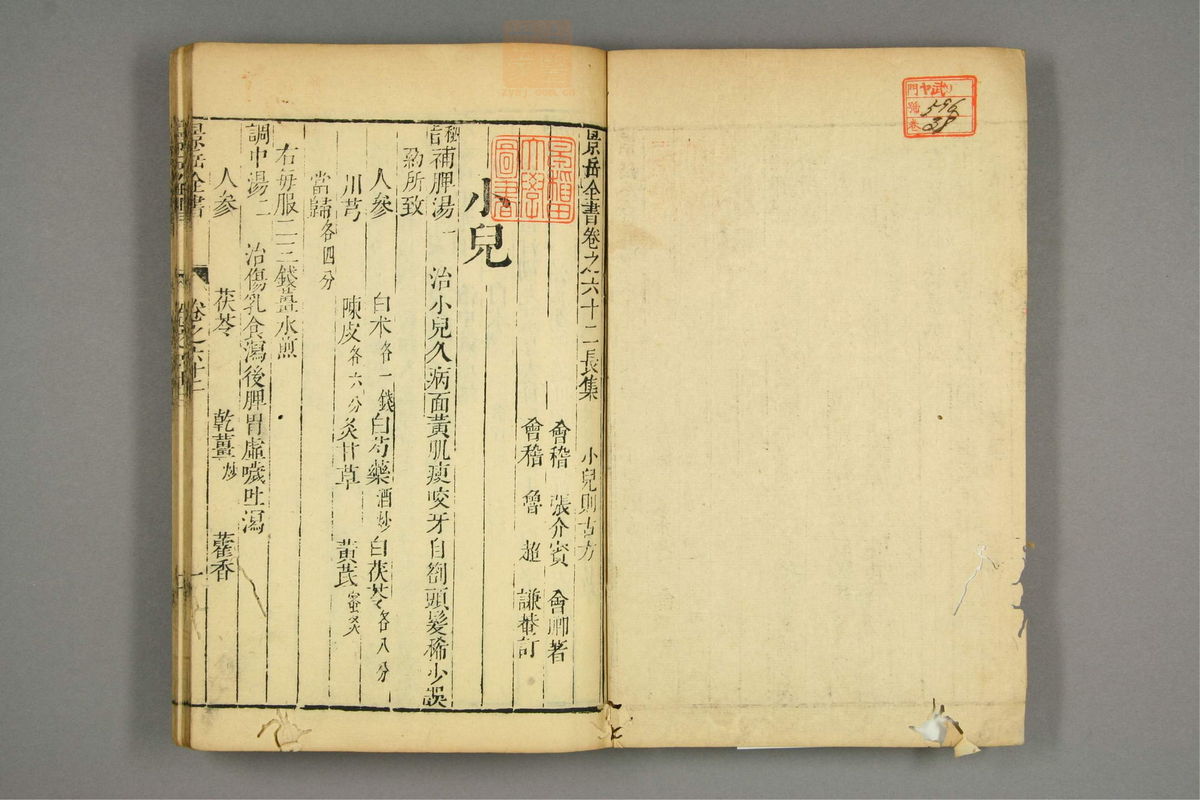 景岳全書卷之六十二長集 小兒則古方
會稽 張介賓 會卿著
會稽 魯 超 謙菴訂
小兒
秘旨補脾湯一 治小兒久病面黃肌瘦咬牙目劄頭髮稀少誤
藥所致
人參 白术各一錢 白芍藥酒炒 白茯苓各八分
川芎 陳皮各六分 炙甘草 黃芪蜜炙
當歸各四分
右每服二三錢薑水煎
調中湯二 治傷乳食瀉後脾胃虛噦吐瀉
人參 茯苓 乾薑炒 藿香
景岳全書 卷之六十二 一
早稻田大學圖書
門 號 卷
596
38